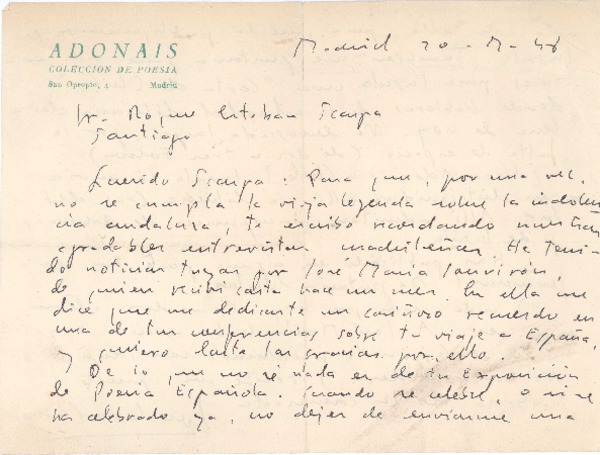 ADONAIS
COLECCION DE POESIA
San Opropio, 4 Madrid
Madrid 20-M-48
Sr. Roque Esteban Scarpa
Santiago
Querido Scarpa: Para que, por una vez,
no se cumpla la vieja leyenda sobre la indolen
cia andaluza, te escribo recordando nuestras
agradables entrevistas madrileñas. He teni-
do noticias tuyas por José María Souvirón,
de quien recibí carta hace un mes. En ella me
dice que me dedicaste un cariñoso recuerdo en
una de tus conferencias sobre tu viaje a España,
y quiero darte las gracias por ello.
De lo que no sé nada es de tu Exposición
de Poesía Española. Cuando se celebre, o si se
ha celebrado ya, no dejes de enviarme una